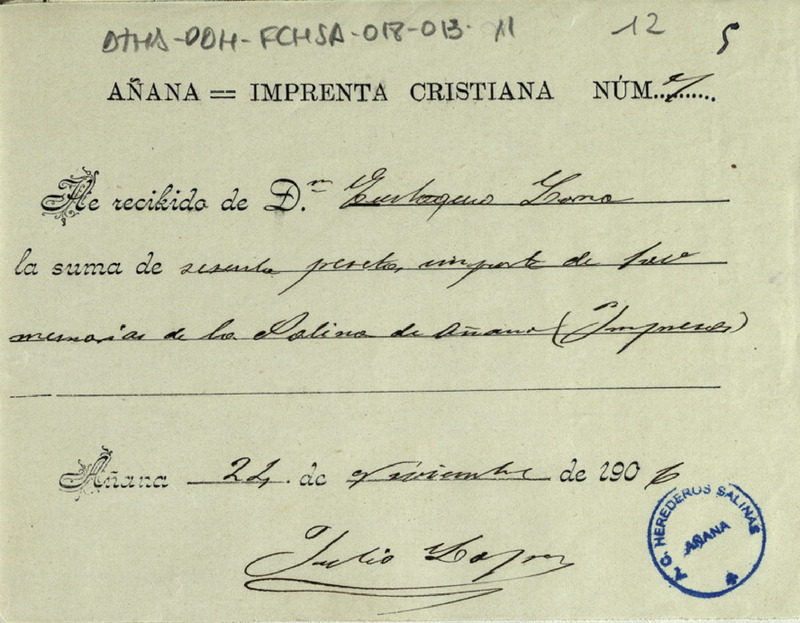 DTHS-DDH-FCHSA-018-013 11 12 5
AÑANA = IMPRENTA CRISTIANA NÚM. 7
He recibido de D.ⁿ Eustaquio
la suma de sesenta pesetas, importe de
memorias de la Salina de Añana (Impresos)
Añana 24 de Noviembre de 1906
Julio Lopez
A. C. HEREDEROS SALINAS
AÑANA